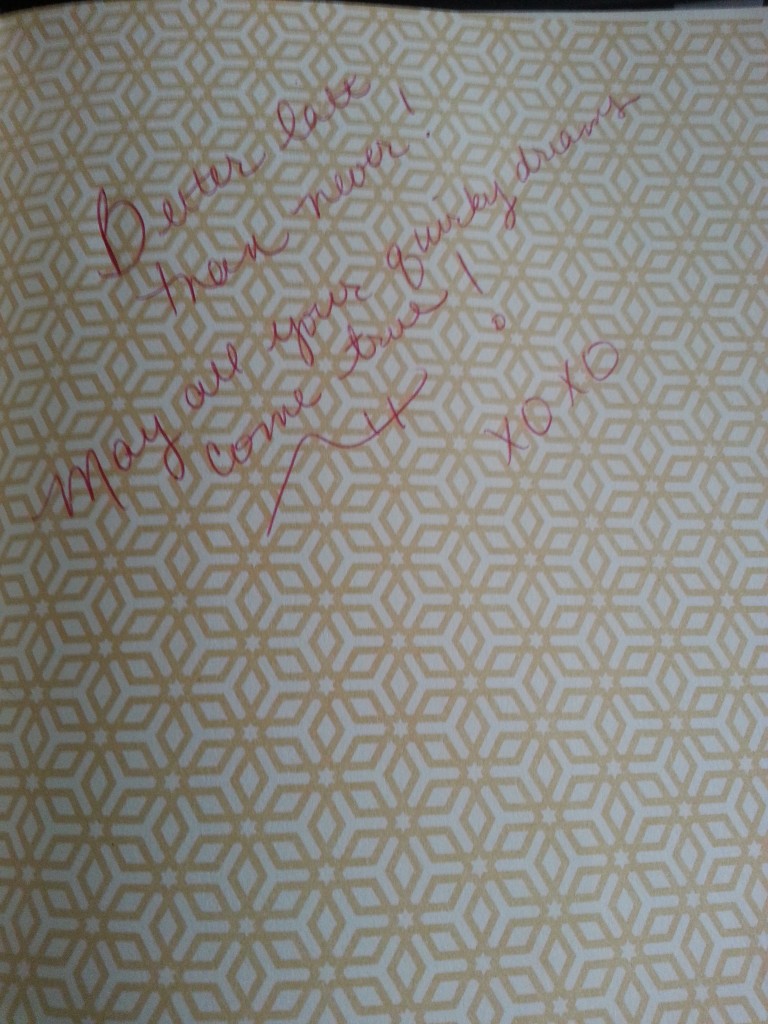 Better late
than never!
May all your quirky dreams
come true!
XOXO